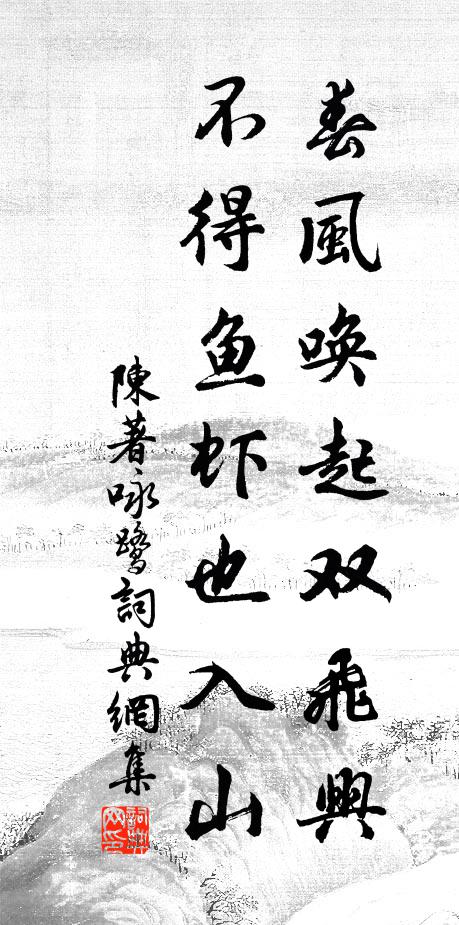 春風唤起双飛興
不得鱼虾也入山
陳著咏鹭詞典網集